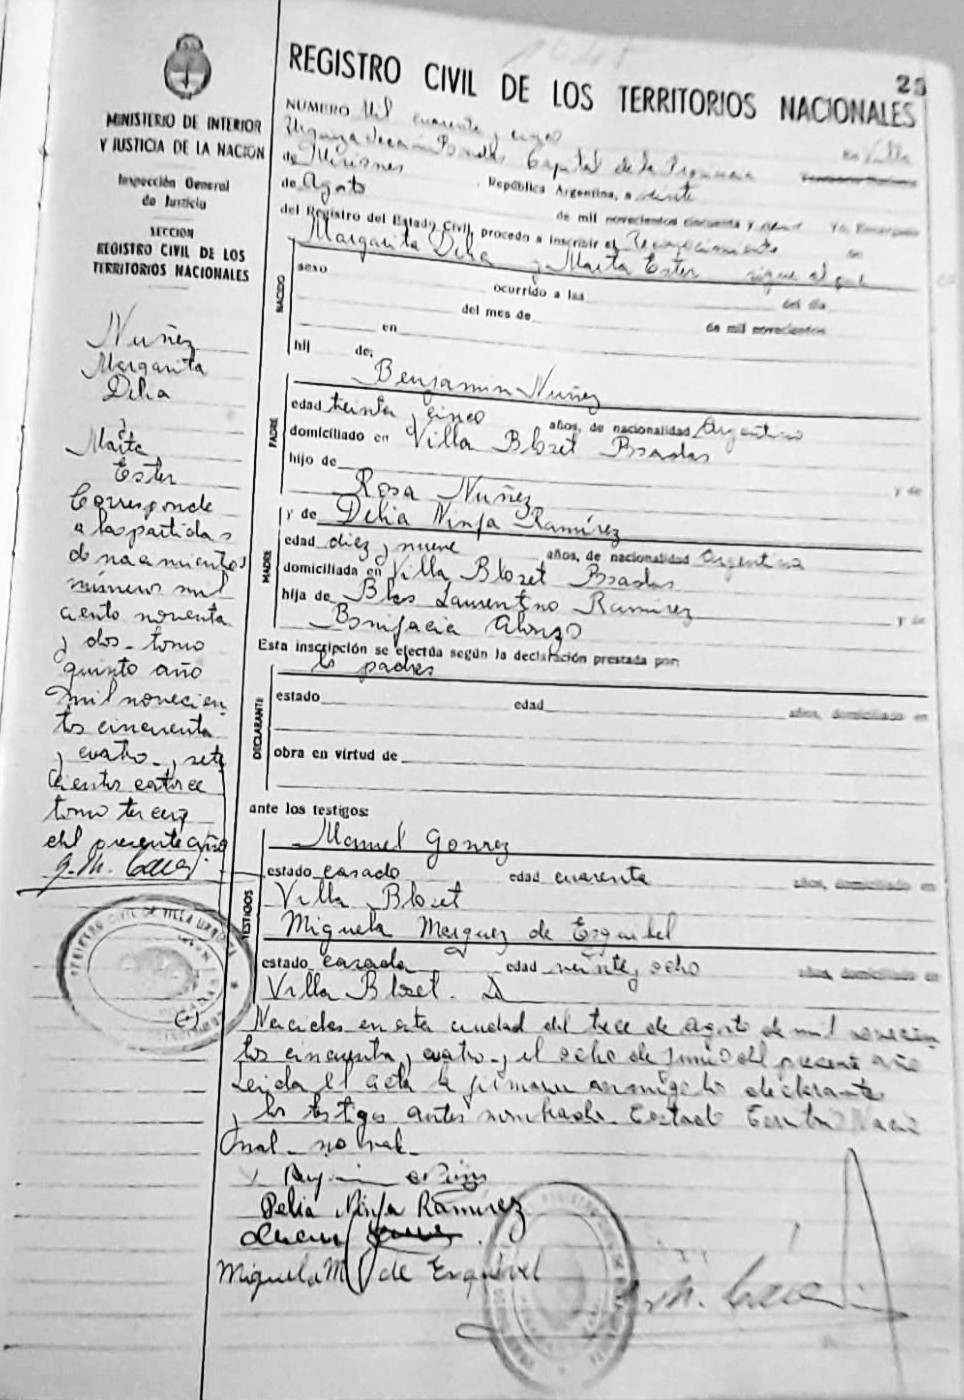 1045
25
REGISTRO CIVIL DE LOS TERRITORIOS NACIONALES
MINISTERIO DE INTERIOR
Y JUSTICIA DE LA NACION
Inspección General
de Justicia
SECCION
REGISTRO CIVIL DE LOS
TERRITORIOS NACIONALES
Nuñez
Margarita
Delia
y
Marta
Ester
Corresponde
a las partidas
de nacimientos
número mil
ciento noventa
y dos - tomo
quinto año
mil novecien
tos cincuenta
y cuatro - y sete
cientos catorce
tomo tercero
del presente año
NUMERO Mil cuarenta y cinco en Villa
Capital de la Provincia
de Misiones República Argentina, a veinte
de Agosto de mil novecientos cincuenta y Yo, Encargado
del Registro del Estado Civil, procedo a inscribir el Reconocimiento de
Margarita Delia y Marta Ester sigue al pie
NACIDO
sexo ocurrido a las del día
del mes de de mil novecientos
en
hij de:
PADRE
Benjamin Nuñez
edad treinta y cinco años, de nacionalidad Argentino
domiciliado en Villa Bloset Posadas
hijo de y de
Rosa Nuñez
MADRE
y de Delia Ninfa Ramírez
edad diez y nueve años, de nacionalidad Argentina
domiciliada en Villa Bloset Posadas
hija de Blas Laurentino Ramirez y de
Bonifacia Alonzo
Esta inscripción se efectúa según la declaración prestada por:
los padres
DECLARANTE
estado edad años, domiciliado en
obra en virtud de
ante los testigos:
TESTIGOS
Manuel
estado casado edad cuarenta años, domiciliado en
Villa Bloset
Miguela Marquez de Esquibel
estado casada edad veinte y ocho años, domiciliado en
Villa Bloset.
Nacidas en esta ciudad del trece de Agosto de mil novecien
tos cincuenta y cuatro - y el ocho de Junio del presente año
Leida el acta la firman conmigo los declarantes
y los testigos antes nombrados. Testado Territorio Nacio
nal - no vale -
Delia Ninfa Ramírez
Miguela M. de Esquivel